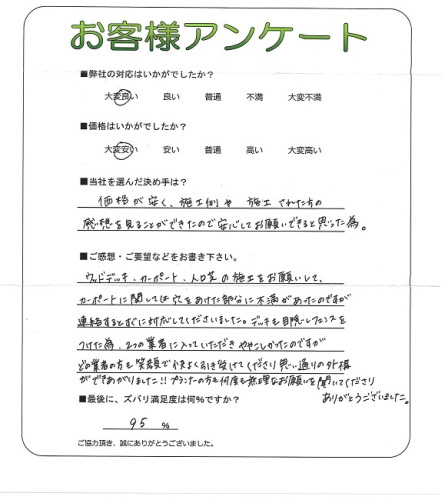 お客様アンケート
■弊社の対応はいかがでしたか？
大変良い 良い 普通 不満 大変不満
■価格はいかがでしたか？
大変安い 安い 普通 高い 大変高い
■当社を選んだ決め手は？
価格が安く、施工例や 施工された方の
感想を見ることができたので安心してお願いできると思った為。
■ご感想・ご要望などをお書き下さい。
ウッドデッキ、カーポート、人口芝の施工をお願いして、
カーポートに関しては穴をあけた部分に不満があったのですが
連絡するとすぐに対応してくださいました。デッキも目隠しフェンスを
つけた為、2つの業者に入っていただき ややこしかったのですが
どの業者の方も笑顔で快よく引き受けてくださり思い通りの外構
ができあがりました!!プランナーの方も何度も無理なお願いを聞いてくださり
ありがとうございました。
■最後に、ズバリ満足度は何%ですか？
95 %
ご協力頂き、誠にありがとうございました。